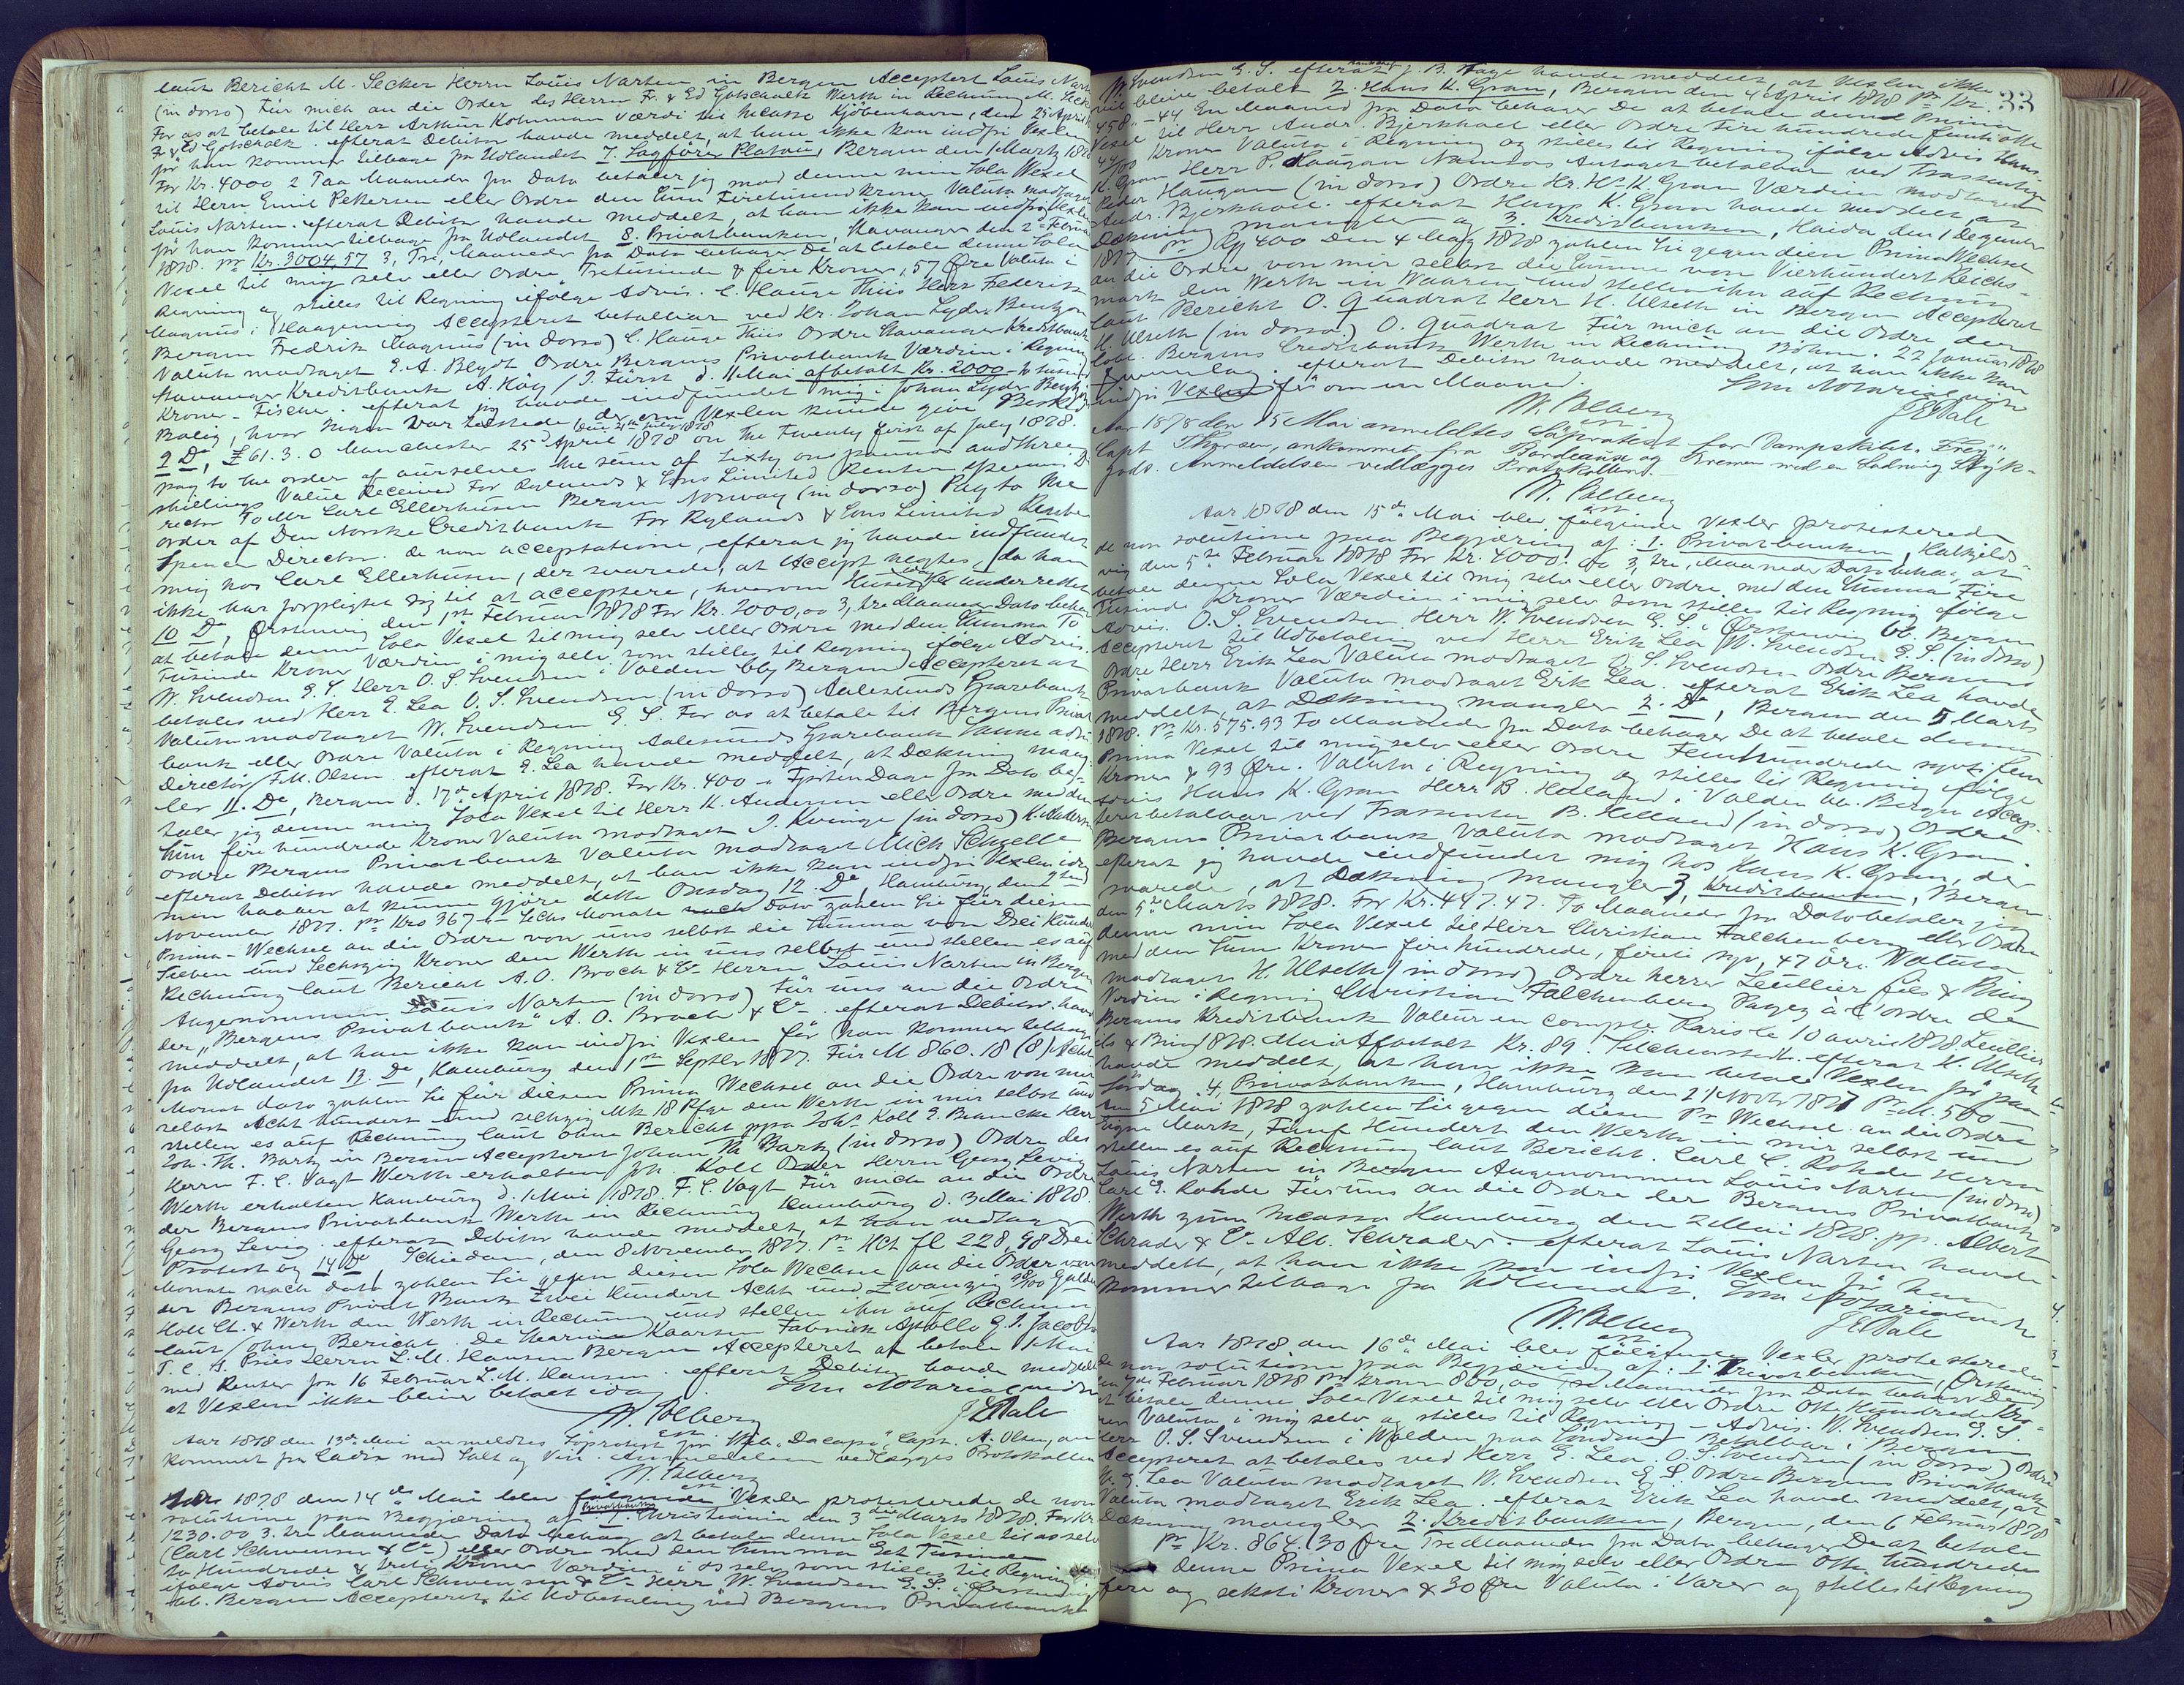 laut Bericht M. Secker Herrn Louis Narten in Bergen Acceptert Louis Narten
(in dorso) Für mich an die Order des Herrn Fr. & Ed Gotschalk Werth in Rechnung M. Secker
For os at betale til Herr Arthur Kohnmann Værdi til Incasso Kjöbenhavn, den 25 April
Fr & Ed Gotschalk. efterat Debitor havde meddelt, at han ikke kan indfri Vexlen
för han kommer tilbage fra Udlandet 7. Sagförer Platou, Bergen den 1 Marts 1878
For Kr. 4000 2 Toa Maaneder fra Dato betaler jeg mod denne min Sola Wexel
til Herr Emil Pettersen eller Ordre den Sum Firetusend Kroner Valuta modtaget
Louis Narten. efterat Debitor havde meddelt, at han ikke kan indfri Vexlen
för han kommer tilbage fra Udlandet 8. Privatbanken, Stavanger den 2den Februar
1878. pr Kr. 3004,57 3, Tre, Maaneder fra Dato behager De at betale denne Sola
Vexel til mig selv eller Ordre Tretusinde & fire Kroner, 57 Øre Valuta i
Regning og stilles til Regning ifölge Advis. C. Hauge Thiis Herr Frederik
Magnus i Haugesund Accepteret betalbar ved Hr. Johan Lyder Bentzon
Bergen Fredrik Magnus (in dorso) C. Hauge Thiis Ordre Stavanger Kreditbank
Valuta modtaget E. A. Blydt Ordre Bergens Privatbank Værdien i Regning
Stavanger Kreditbank A. Höy / J. Fürst d. 11 Mai afbetalt Kr. 2000 - to tusind
Kroner - Fischer. efterat jeg havde indfundet mig i Johan Lyder Bentzon
Bolig, hvor Ingen var tilstede der om Vexlen kunde give Besked
9 Do, £ 61.3.0 Manchester 25th April 1878 on the Twenty first of July 1878.
pay to the order of ourselves the sum of Sixty one pounds and three
shillings Value Received For Rylands & Sons Limited Reuben Spencer Di-
rector To Mr Carl Ellerhusen Bergen Norway (in dorso) Pay to the
order of Den Norske Creditbank For Rylands & Sons Limited Reuben
Spencer Director. de non acceptatione, efterat jeg havde indfundet
mig hos Carl Ellerhusen, der svarede, at Accept negtes, da han
ikke har forpligtet sig til at acceptere, hvorom Huset er underrettet
10 Do, Ørstenvig den 1ste Februar 1878 For Kr. 2000,00 3, tre Maaneder Dato behag
at betale denne Sola Vexel til mig selv eller Ordre med den Summa To
Tusinde Kroner Værdien i mig selv som stilles til Regning ifölge Advis.
W. Svendsen E. S. Herr O. S. Svendsen i Volden bby Bergen Accepteret at
betales ved Herr E. Lea O. S. Svendsen (in dorso) Aalesunds Sparebank
Valuta modtaget W. Svendsen E. S. For os at betale til Bergens Privat
bank eller Ordre Valuta i Regning Aalesunds Sparebank Vanne adm.
Directör / F. M. Olsen. efterat E. Lea havde meddelt, at Dækning mang-
ler 11. Do, Bergen d. 17de April 1878. For Kr. 400 - Fjorten Dage fra Dato be-
taler jeg denne min Sola Vexel til Herr K. Andersen eller Ordre med den
Sum fire hundrede Kroner Valuta modtaget J. Kvinge (in dorso) K. Andersen
Ordre Bergens Privatbank Valuta modtaget Mich Schjelle
efterat Debitor havde meddelt, at han ikke kan indfri Vexlen idag
men haaber at kunne gjöre dette Onsdag 12. Do, Hamburg, den 9ten
November 1877. pr Kro 367 - Sechs Monate nach Dato zahlen Sie für diesen
Prima-Wechsel an die Ordre von uns selbst die Summa von Drei Hundert
Sieben und Sechszig Kronen den Werth in uns selbst und stellen es auf
Rechnung laut Bericht A. O. Broch & Co Herrn Louis Narten in Bergen
Angenommen Louis Narten (in dorso) Für uns an die Ordre
der „Bergens Privatbank" A. O. Broch & Co. efterat Debitor havde
meddelt, at han ikke kan indfri Vexlen för han kommer tilbage
fra Udlandet 13. Do, Hamburg den 1sten Septbr 1877. Für M 860.18 (8) Acht
Monat dato zahlen Sie für diesen Prima Wechsel an die Ordre von mir
selbst Acht hundert und sechzig Mk 18 Pfge den Werth in mir selbst und
stellen es auf Rechnung laut ohne Bericht ppa Johs Koll E. Behncke Herr
Joh. Th. Bartz in Bergen Accepteret Johan Th Bartz (in dorso) Ordre des
Herrn F. C. Vagt Werth erhalten Joh. Koll Order Herrn Georg Levig
Werth erhalten Hamburg d. 1 Mai 1878. F. C. Vagt Für mich an die Ordre
der Bergens Privatbank Werth in Rechnung Hamburg d. 3 Mai 1878.
Georg Levig. efterat Debitor havde meddelt, at han vedtog
Protest og 14 Do, Schiedam, den 8 November 1877. pr HCt fl 228,98 Drei
Monate nach dato zahlen Sie gegen diesen Sola Wechsel an die Order von
der Bergens Privat Bank Zwei Hundert Acht und Zwanzig 98/100 Gulden
Holl Ct. & Werth den Werth in Rechnung und stellen ihn auf Rechnung
laut / ohne Bericht. De Stearine Kaarsen Fabriek Apollo G. J. Jacobs
T. C. A. Pries Herrn L. M. Hansen Bergen Accepteret at betale 1 Mai
med Renter fra 16 Februar L. M. Hansen. efterat Debitor havde meddelt
at Vexlen ikke bliver betalt idag. Som Notarialvidne
W. Solberg J E Dale
Aar 1878 den 13de Mai anmeldtes Söprotest for Skib „Dacapo", Capt. A. Olsen, an-
kommet fra Cadix med Salt og Vin. Anmeldelsen vedlægges Protokollen
W. Solberg
Aar 1878 den 14de Mai blev følgende Vexler protesterede de non
solutione paa Begjæring af Privatbanken 1. Christiania den 3die Marts 1878. For Kr.
1230.00 3. tre Maaneder Dato behag at betale denne Sola Vexel til os selv
(Carl Schwensen & Co) eller Ordre med den Summa Et Tusinde
to Hundrede & treti Kroner Værdien i os selv som stilles til Regning
ifölge Advis Carl Schwensen & Co Herr W. Svendsen E. S. i Ørstenvig
ab. Bergen Accepteret til Udbetaling ved Bergens Privatbank
33
W. Svendsen E. S. efterat J. B. Fage havde meddelt, at Vexlen ikke
vil blive betalt 2. Hans K. Gran, Bergen den 4 April 1878 pr Kr.
458 - 44 En Maaned fra Dato behager De at betale denne Prima
Vexel til Herr Andr. Bjerkhoel eller Ordre Fire hundrede femti otte
44/100 Kroner Valuta i Regning og stilles til Regning ifölge Advis Hans
K. Gran Herr P. Haugan Namsos Antaget betalbar ved Trassenten
Peder Haugan (in dorso) Ordre Hr. Hs K. Gran Værdien modtaget
Andr. Bjerkhoel. efterat Hans K. Gran havde meddelt, at
Dækning mangler og 3. Kreditbanken, Haida den 1 Dezember
1877 pr Rm 400 Den 4 May 1878 zahlen Sie gegen diesen Prima Wechsel
an die Ordre von mir selbst die Summe von Vierhundert Reichs-
mark den Werth in Waaren und stellen ihn auf Rechnung
laut Bericht O. Quadrat Herr H. Ulseth in Bergen Accepteret
H. Ulseth (in dorso) O. Quadrat Für mich an die Ordre der
löbl. Bergens Creditbank Werth in Rechnung Böhm. 22 Januar 1878
efterat Debitor havde meddelt, at han ikke kan
indfri Vexlen för om en Maaned. Som Notarialvidne
W. Solberg J E Dale
Aar 1878 den 15 Mai anmeldtes Söprotest for Dampskibet „Freya",
Capt. Thorsen, ankommet fra Bordeaux og Bremen med en Ladning Styk-
gods. Anmeldelsen vedlægges Protokollen.
W. Solberg
Aar 1878 den 15de Mai blev følgende Vexler protesterede
de non solutione paa Begjæring af: 1. Privatbanken, Kalvelds-
vig den 5te Februar 1878 For Kr. 4000.00 3, tre, Maaneder Dato behag at
betale denne Sola Vexel til mig selv eller Ordre med den Summa Fire
Tusinde Kroner Værdien i mig selv som stilles til Regning ifölge
Advis. O. S. Svendsen Herr W. Svendsen E. S. i Ørstenvig bb. Bergen
Accepteret til Udbetaling ved Herr Erik Lea W. Svendsen E. S. (in dorso)
Ordre Herr Erik Lea Valuta modtaget O. S. Svendsen Ordre Bergens
Privatbank Valuta modtaget Erik Lea. efterat Erik Lea havde
meddelt, at Dækning mangler 2. Do, Bergen den 5 Marts
1878. pr Kr. 575.93 To Maaneder fra Dato behager De at betale denne
Prima Vexel til mig selv eller Ordre Femhundrede sytti fem
Kroner & 93 Øre. Valuta i Regning og stilles til Regning ifölge
Advis Hans K. Gran Herr B. Helland i Volden bb. Bergen Accep-
teret betalbar ved Trassenten B. Helland (in dorso) Ordre
Bergens Privatbank Valuta modtaget Hans K. Gran.
efterat jeg havde indfundet mig hos Hans K. Gran, der
svarede, at Dækning mangler 3. Kreditbanken, Bergen
den 5te Marts 1878. For Kr. 447.47. To Maaneder fra Dato betaler jeg
denne min Sola Vexel til Herr Christian Falchenberg eller Ordre
med den Sum Kroner firehundrede, förti syv, 47 Öre. Valuta
modtaget H. Ulseth (in dorso) Ordre Herrer Leullier fils & Bing
Værdien i Regning Christian Falchenberg Payez à l'ordre de
Bergens Kreditbank Valeur en compte Paris le 10 avril 1878. Leullier
fils & Bing 1878. Mai Afbetalt Kr. 89. efterat H. Ulseth
havde meddelt, at han ikke kan betale Vexlen før paa
Lördag 4. Privatbanken, Hamburg den 21 Novbr 1877 Pr. M. 500 -
Am 5 Mai 1878 zahlen Sie gegen diesen Pr Wechsel an die Ordre
Eigne Mark, Fünf Hundert den Werth in mir selbst und
stellen es auf Rechnung laut Bericht. Carl C. Rohde Herrn
Louis Narten in Bergen Angenommen Louis Narten (in dorso)
Carl C. Rohde Für uns an die Ordre der Bergens Privatbank
Werth zum Incasso Hamburg den 2 Mai 1878. pp. Albert
Schrader & Co Alb. Schrader. efterat Louis Narten havde
meddelt, at han ikke kan indfri Vexlen för han
kommer tilbage fra Udlandet. Som Notarialvidne
W. Solberg J E Dale
Aar 1878 den 16de Mai blev følgende Vexler protesterede
de non solutione paa Begjæring af: 1. Privatbanken, Ørstenvig
den 7de Februar 1878 pr Kroner 800,00 Tre Maaneder fra Dato behager De
at betale denne Sola Vexel til mig selv eller Ordre Otte Hundrede Kro-
ner Valuta i mig selv og stilles til Regning - Advis. W. Svendsen E. S.
Herr O. S. Svendsen i Volden paa Söndmör Betalbar i Bergen
Accepteret at betales ved Herr E. Lea. O. S. Svendsen (in dorso) Ordre
Hr E. Lea Valuta modtaget W. Svendsen E. S. Ordre Bergens Privatbank
Valuta modtaget Erik Lea. efterat Erik Lea havde meddelt, at
Dækning mangler 2. Kreditbanken, Bergen, den 6 Februar 1878
pr Kr. 864.30 Øre Tre Maaneder fra Dato behager De at betale
denne Prima Vexel til mig selv eller Ordre Otte hundrede
fire og seksti Kroner & 30 Øre Valuta i Varer og stilles til Regning